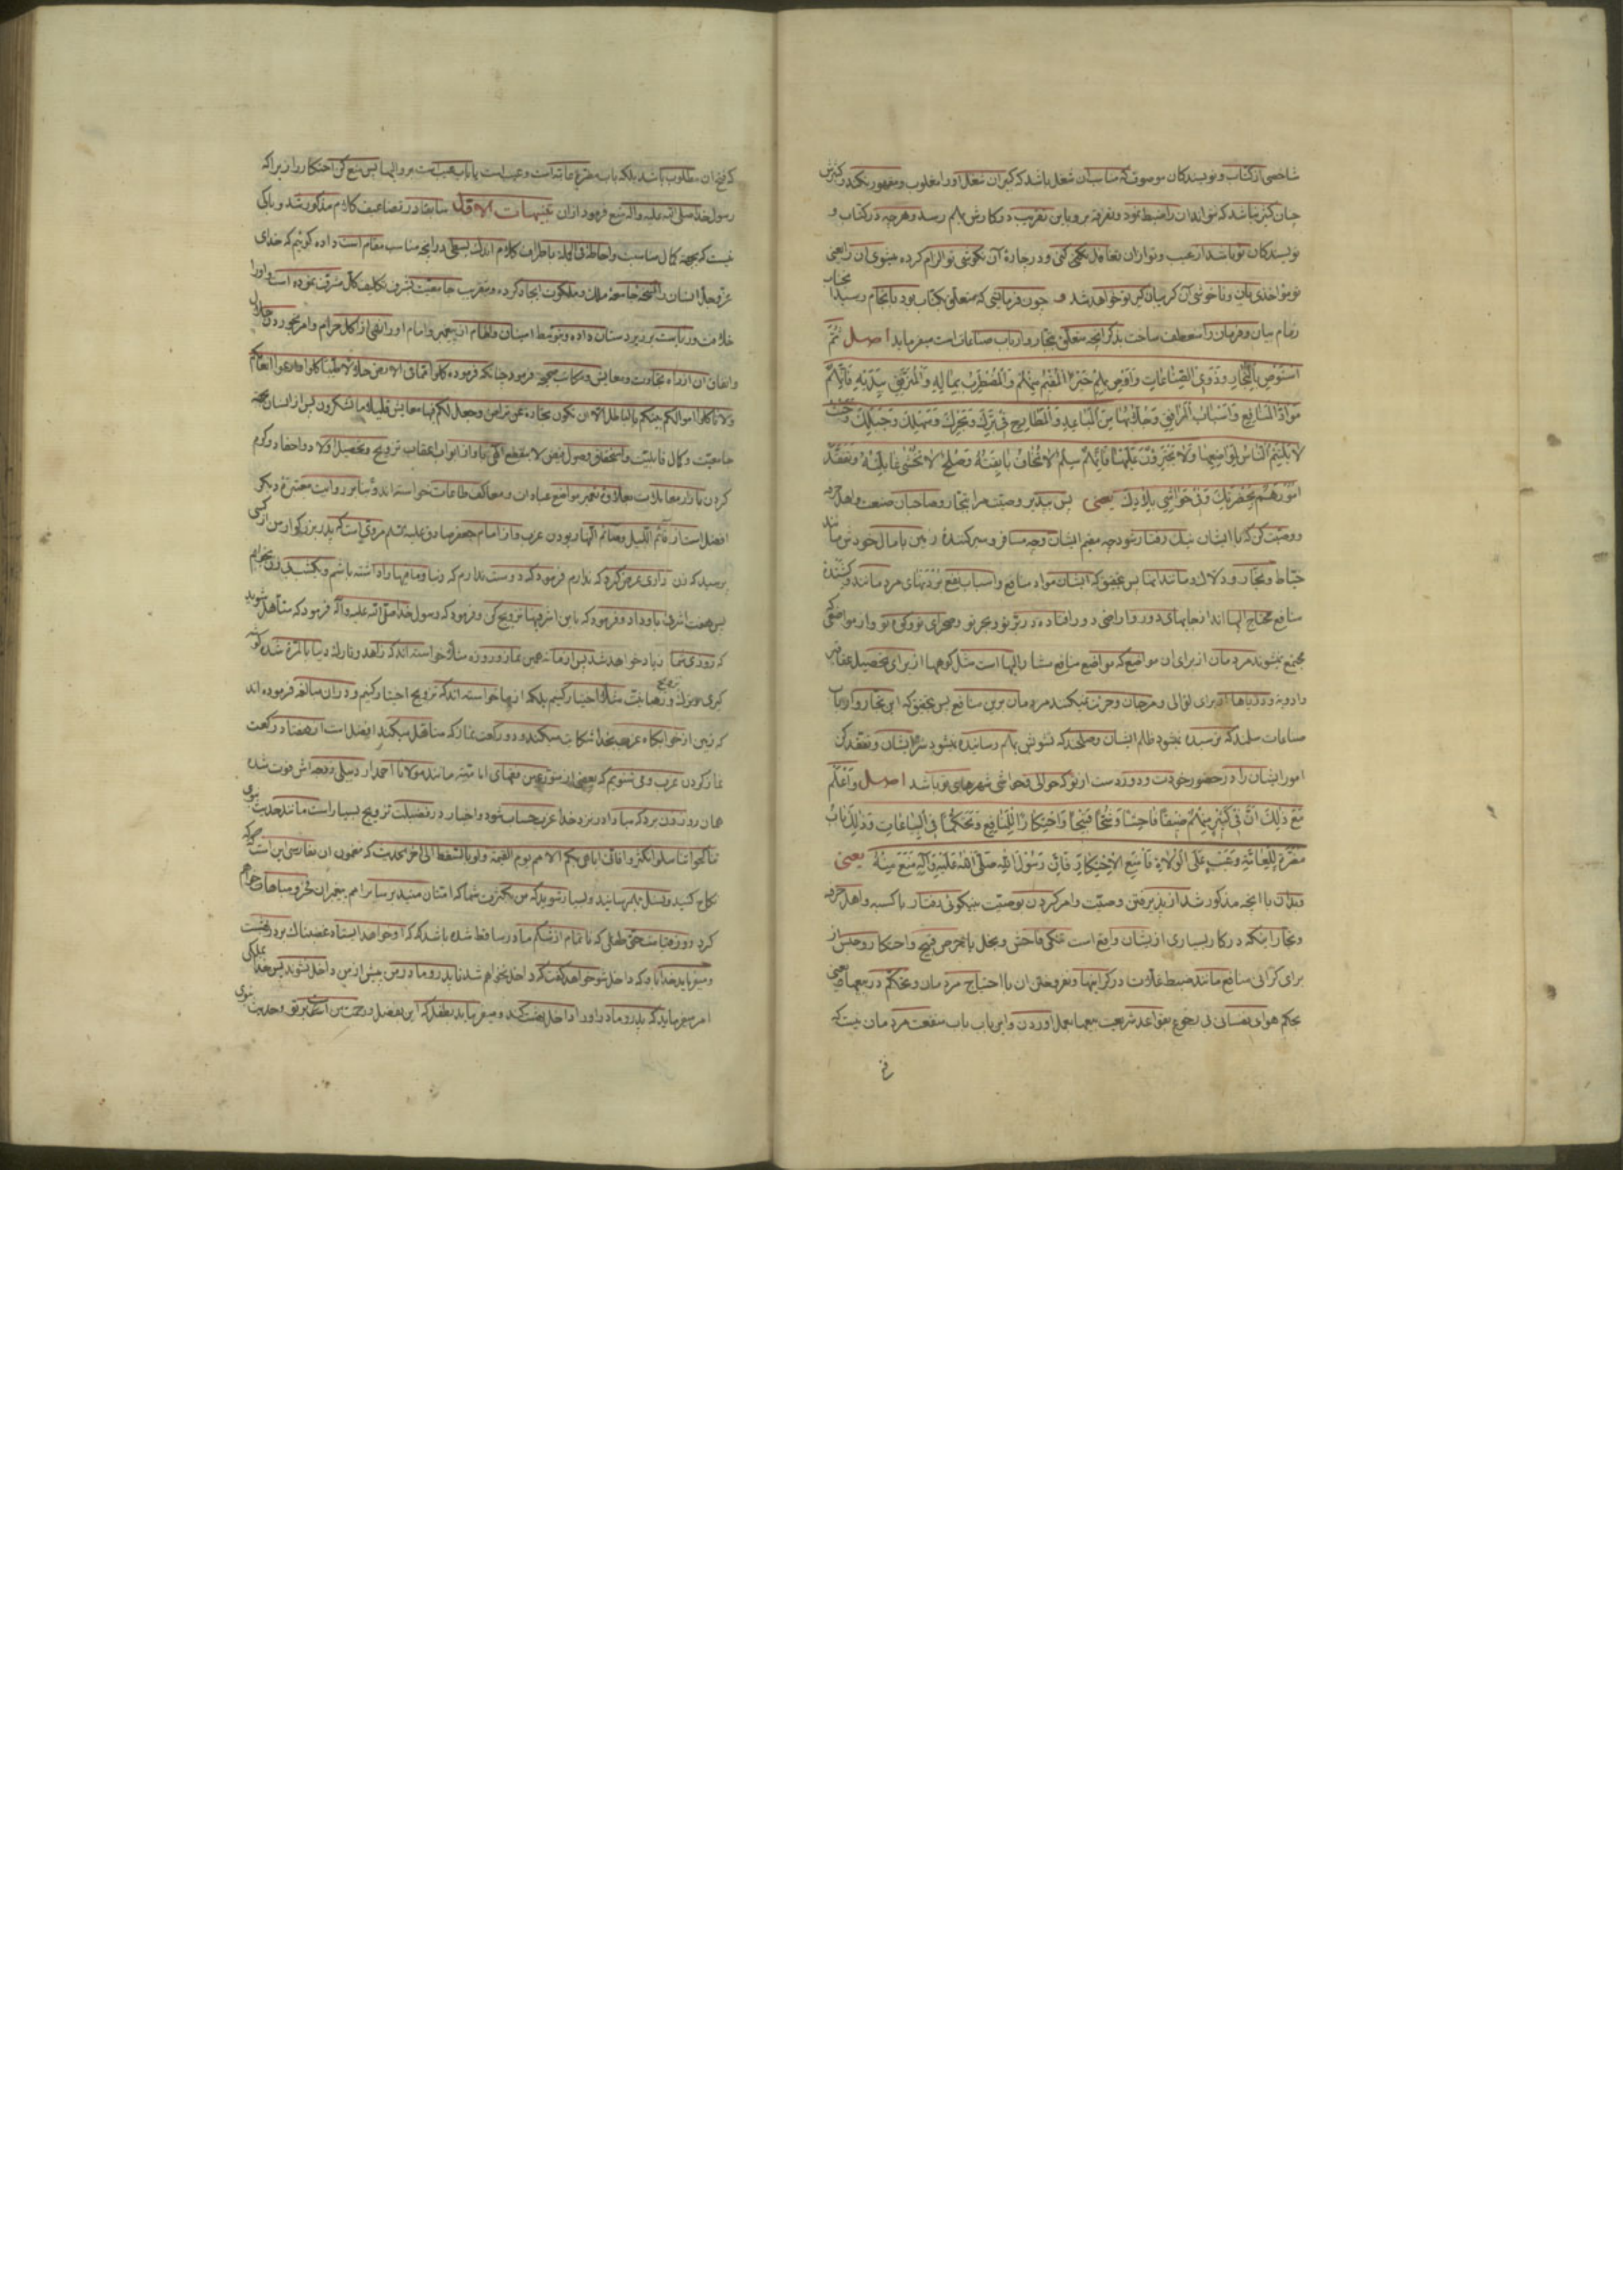 شاخصی از کتاب و نویسندکان موصوف که مناسب ان شغل باشد که کبیر ان شغل اورا مغلوب و مقهور نکند و کثیرش
چنان کثیر نباشد که نتواند ان را ضبط نمود و تفرقه برو یابد این تقریب در کارش بهم رسد و هرچه در کتاب و
نویسندکان تو باشد از عیب و تو از ان تغافل بکنی و در چارهٔ آن نکوشی تو الزام کرده میشوی ان را یعنی
تو مؤاخذی بان و ناخوشی آن کریبان کیر تو خواهد شد و چون فرمایشی که متعلق بکتاب بود بانجام رسید
زمام بیان و فرمان را منعطف ساخت بذکر انچه متعلق بتجار و ارباب صناعات است میفرماید اصل ثُمَّ
اسْتَوْصِ بِالتُّجَّارِ وَذَوِی الصِّنَاعَاتِ وَاَوْصِ بِهِمْ خَیْرًا الْمُقِیْمِ مِنْهُمْ وَالْمُضْطَرِبِ بِمَالِهِ وَالْمُتَرَفِّقِ بِبَدَنِهِ فَاِنَّهُمْ
مَوَادُّ الْمَنَافِعِ وَاَسْبَابُ الْمَرَافِقِ وَجُلَّابُهَا مِنَ الْمَبَاعِدِ وَالْمَطَارِحِ فِی بَرِّكَ وَبَحْرِكَ وَسَهْلِكَ وَجَبَلِكَ وَحَیْثُ
لَا یَلْتَئِمُ النَّاسُ لِمَوَاضِعِهَا وَلَا یَجْتَرِؤُنَ عَلَیْهَا فَاِنَّهُمْ سِلْمٌ لَا تُخَافُ بَائِقَتُهُ وَصُلْحٌ لَا تُخْشٰی غَائِلَتُهُ وَتَفَقَّدْ
اُمُوْرَهُمْ بِحَضْرَتِكَ وَفِی حَوَاشِی بِلَادِكَ یعنی پس بپذیر وصیت مرا بتجار و صاحبان صنعت و اهل حرفه
و وصیت کن که با ایشان نیك رفتار شود چه مقیم ایشان و چه مسافر و سیر کنندهٔ زمین با مال خودش مانند
خیاط و نجار و دلاك و مانند اینها پس بتحقیق که ایشان مواد منافع و اسباب نفع بردنهای مردمانند و کشندهٔ
منافع محتاج الیها اند از جایهای دور و اراضی دور افتاده در بر تو و بحر تو و صحرای تو و کوه تو و از مواضعی که
مجتمع نمیشوند مردمان از برای ان مواضع که مواضع منافع مشار الیها است مثل کوهها از برای تحصیل عقاقیر
و ادویه و دریاها از برای لؤالی و مرجان و جرئت نمیکنند مردمان برین منافع پس بتحقیق که این تجار و ارباب
صناعات سلمند که ترسیده نمیشود ظلم ایشان و صلحند که تشویش بهم رسانیده نمیشود شر ایشان و تفقد کن
امور ایشان را در حضور خودت و دور دست از تو که حوالی و حواشی شهرهای تو باشد اصل وَاعْلَمْ
مَعَ ذٰلِكَ اَنَّ فِی كَثِیْرٍ مِنْهُمْ ضِیْقًا فَاحِشًا وَشُحًّا قَبِیْحًا وَاحْتِكَارًا لِلْمَنَافِعِ وَتَحَكُّمًا فِی الْبِیَاعَاتِ وَذٰلِكَ بَابُ
مَضَرَّةٍ لِلْعَامَّةِ وَعَیْبٌ عَلَی الْوُلَاةِ فَامْنَعِ الْاِحْتِكَارَ فَاِنَّ رَسُوْلَ اللّٰهِ صَلَّی اللّٰهُ عَلَیْهِ وَآلِهِ مَنَعَ مِنْهُ یعنی
و بدان با انچه مذکور شد از پذیرفتن وصیت و امر کردن بوصیت بنیکوئی رفتار با کسبه و اهل حرفه
و تجار اینکه در کار بسیاری از یشان واقع است تنکی فاحش و بخل با حرص قبیح و احتکار و حبس از
برای کرانی منافع مانند ضبط غلات در کرانیها و نفروختن ان با احتیاج مردمان و تحکم در بیعها یعنی
بحکم هوای نفسانی بی رجوع بقواعد شریعت بیعها بعمل اوردن و این باب باب منفعت مردمان نیست که
که فتح ان مطلوب باشد بلکه باب مضرة عامه است و عیب است یا باب عیب است بر والیها پس منع کن احتکار را زیرا که
رسول خدا صلی الله علیه وآله منع فرمود از ان تنبیهات الاول سابقا در تضاعیف کلام مذکور شد و باکی
نیست که بجهة کمال مناسبت و احاطهٔ فی الجمله باطراف کلام اندك بسطی در انچه مناسب مقام است داده کوئیم که خدای
عز وجل انسان را نسخهٔ جامعهٔ ملك و ملکوت ایجاد کرده و بتقریب جامعیت بشرف تکلیف کل مشرف نموده است و اورا
خلافت و ریاست بر زیردستان داده و بتوسط امینان والهام از پیغمبر و امام اورا نهی از اکل حرام و امر بخوردن حلال
و انفاق ان از راه تجارت و معایش و مکاسب صحیحه فرمود چنانکه فرموده کلوا مما فی الارض حلالا طیبا کلوا وارعوا انعامکم
ولا تاکلوا اموالکم بینکم بالباطل الا ان تکون تجارة عن تراض وجعل لکم فیها معایش قلیلا ما تشکرون پس از انسان بجهة
جامعیت و کمال قابلیت و استحقاق وصول بفیض لا ینقطع الهی باو از ابواب اعقاب ترویج و تحصیل اولاد و احفاد و کرم
کردن بازار معاملات علاوهٔ تعمیر مواضع عبادات و معاکف طاعات خواسته اند و بنابر روایت معتبرهٔ دیکر
افضل است از قائم اللیل و صائم النهار بودن عزب و از امام جعفر صادق علیه السلم مروی است که پدر بزرکوار من از کسی
پرسید که زن داری عرض کرد که ندارم فرمود که دوست ندارم که دنیا و ما فیها را داشته باشم و یکشب بی زن بخوابم
پس هفت اشرفی باو داد و فرمود که باین اشرفیها تزویج کن و فرمود که رسول خدا صلی الله علیه وآله فرمود که متأهل شوید
که روزی شما زیاد خواهد شد پس از ما نه همین نماز و روزه مثلا خواسته اند که زاهد و تارك دنیا بالمرة شده کوشه
کیری و عزلت و رهبانیت مثلا اختیار کنیم بلکه از ما خواسته اند که تزویج اختیار کنیم و در ان مبالغه فرموده اند
که زمین از خوابکاه عزب بخدا شکایت میکند و دو رکعت نماز که متاهل میکند افضل است از هفتاد رکعت
نماز کردن عزب و می شنویم که بعضی از متورعین فقهای امامیه مانند مولانا احمد اردبیلی زوجه اش فوت شده
همان روز زن برد که مبادا در نزد خدا عزب حساب شود و اخبار در فضیلت تزویج بسیار است مانند حدیث نبوی
تناکحوا تناسلوا تکثروا فانی اباهی بکم الامم یوم القیمة ولو بالسقط الی آخر الحدیث که مضمون ان بفارسی این است که
نکاح کنید و نسل بهم رسانید و بسیار شوید که من بکثرت شما که امتان منید بر سایر امم پیغمبران فخر و مباهات خواهم
کرد روز قیامت حتی طفلی که ناتمام از شکم مادر ساقط شده باشد که او خواهد ایستاد غضبناك بر در بهشت
و میفرماید خدا باو که داخل شو خواهد کفت که داخل نخواهم شد تا پدر و مادر من پیش از من داخل نشوند پس خدا بملکی
امر میفرماید که پدر و مادر اورا داخل بهشت کند و میفرماید بطفل که این بفضل و رحمت من است بتو و حدیث نبوی